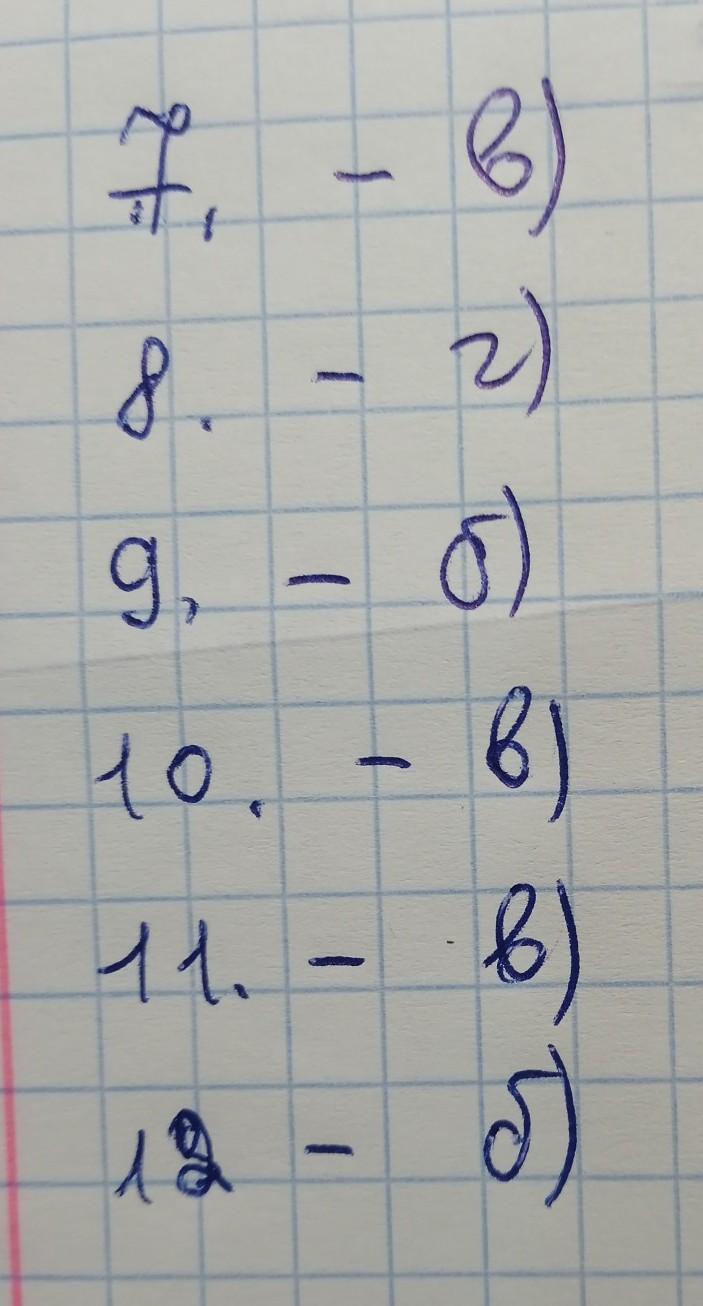 7. - в)
8. - г)
9. - б)
10. - в)
11. - в)
12 - б)